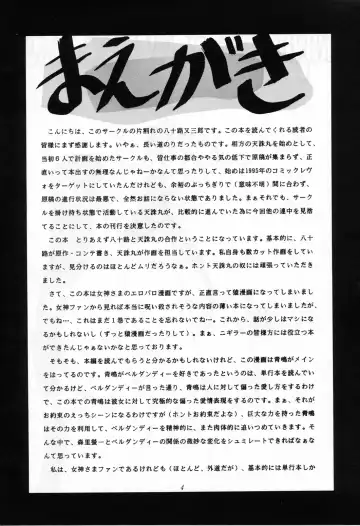 まえがき
こんにちは、このサークルの片割れの八十路又三郎です。この本を読んでくれる読者の
皆様にまず感謝します。いやぁ、長い道のりだったもので。相方の天誅丸を始めとして、
当初6人で計画を始めたサークルも、皆仕事の都合ややる気の低下で原稿が集まらず、正
直いって本出すの無理なんじゃねーかなんて思ったりして、始めは1995年のコミックレヴ
ォをターゲットにしていたんだけれども、余裕のぶっちぎりで(意味不明)間に合わず、
原稿の進行状況は最悪で、全然お話にならない状態でありました。まぁそれでも、サーク
ルを掛け持ち状態で活動している天誅丸が、比較的に進んでいた為に今回他の連中を見捨
てることにして、本の刊行を決意したのです。
この本 とりあえず八十路と天誅丸の合作ということになっています。基本的に、八
十路が原作・コンテ書き、天誅丸が作画を担当しています。私自身も数カット作画をして
いますが、見分けるのはほとんどムリだろうなぁ。ホント天誅丸の奴には頑張っていただき
ました。
さて、この本は女神さまのエロパロ漫画ですが、正直言って猿漫画になってしまいまし
た。女神ファンから見れば本当に呪い殺されそうな内容の薄い本になってしまいましたが、
でもね…、これはまだ1巻であることを忘れないでねー。これから、話が少しはマシにな
るかもしれないし(ずっと猿漫画だったりして)。まぁ、ニギラーの皆様方には役立つ本が
できたんじゃぁないかなと思っております。
そもそも、本編を読んでもらうと分かるかもしれないけれど、この漫画は青嶋がメイン
をはってるのです。青嶋がベルダンディーを好きであったというのは、単行本を読んでい
て分かるけど、ベルダンディーが言った通り、青嶋は人に対して偏った愛し方をするわけ
で、この本での青嶋は彼女に対して究極的な偏った愛情表現をするのです。まぁ、それが
お約束のえっちシーンになるわけですが(ホントお約束だよな)、巨大な力を持った青嶋
はその力を利用して、ベルダンディーを精神的に、また肉体的に追いつめていきます。そ
んな中で、森里螢一とベルダンディーの関係の微妙な変化をシュミレートできればなぁな
んて思っています。
私は、女神さまファンであるけれども(ほとんど、外道だが)、基本的には単行本しか
4